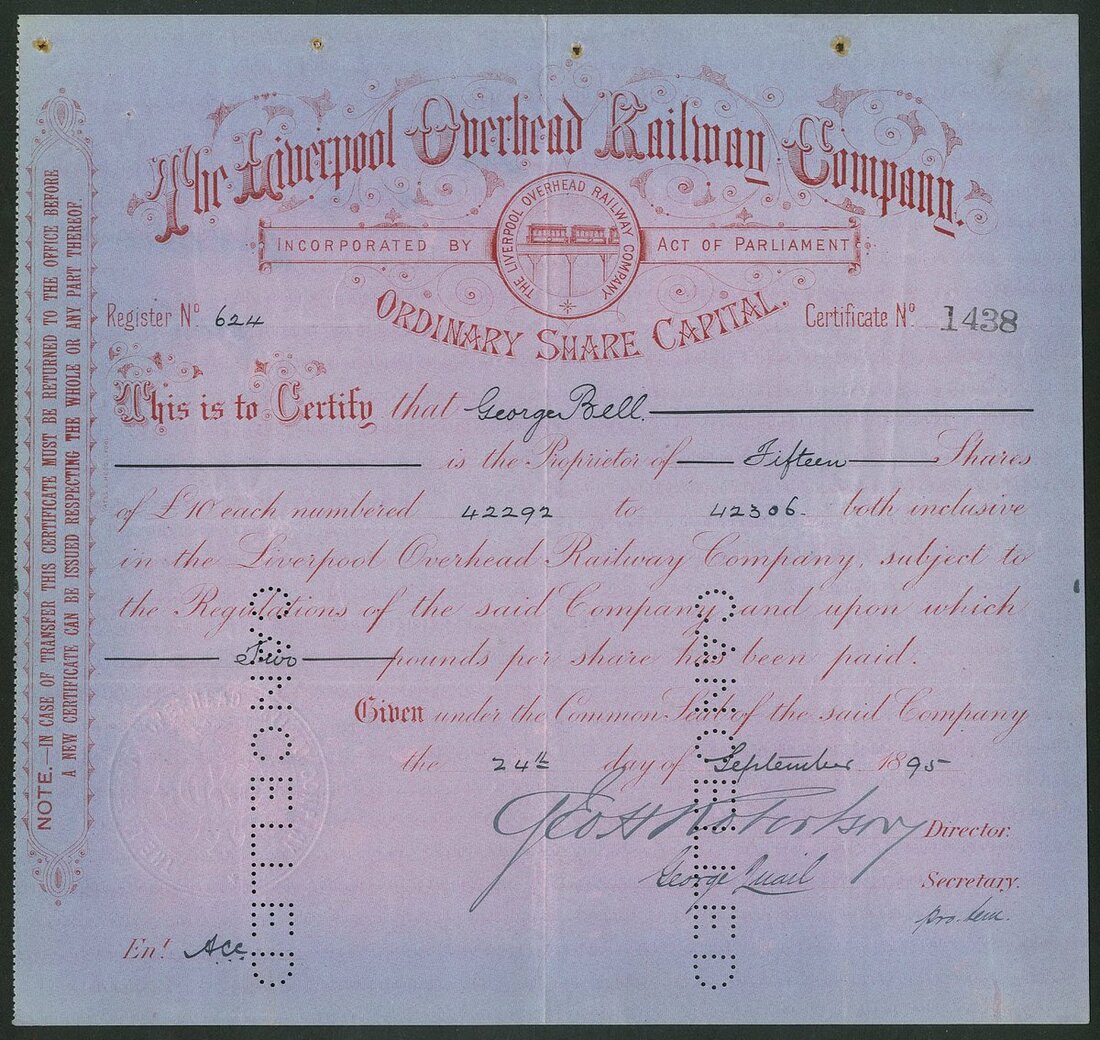 The Liverpool Overhead Railway Company.
INCORPORATED BY ACT OF PARLIAMENT
THE LIVERPOOL OVERHEAD RAILWAY COMPANY
ORDINARY SHARE CAPITAL.
Register No. 624
Certificate No. 1438
This is to Certify that George Bell
is the Proprietor of Fifteen Shares
of £10 each numbered 42292 to 42306 both inclusive
in the Liverpool Overhead Railway Company, subject to
the Regulations of the said Company and upon which
Two pounds per share has been paid.
Given under the Common Seal of the said Company
the 24th day of September 1895
Geo H Robertson Director.
George Quail Secretary.
pro. tem.
Ent. Acc
CANCELLED
CANCELLED
NOTE.—IN CASE OF TRANSFER THIS CERTIFICATE MUST BE RETURNED TO THE OFFICE BEFORE
A NEW CERTIFICATE CAN BE ISSUED RESPECTING THE WHOLE OR ANY PART THEREOF.